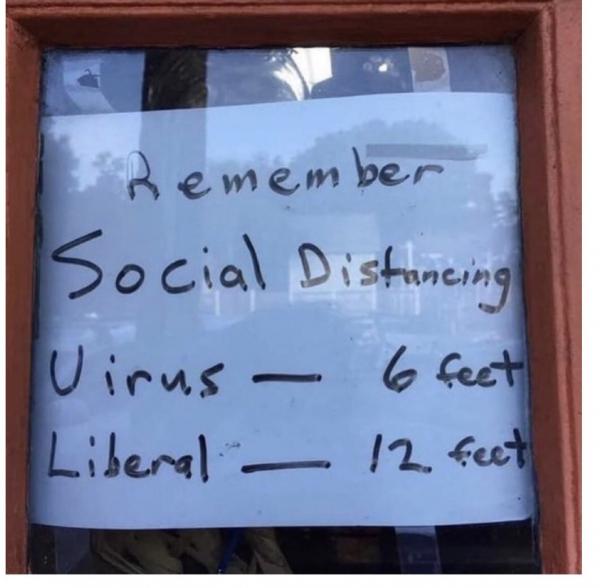 Remember
Social Distancing
Virus — 6 feet
Liberal — 12 feet